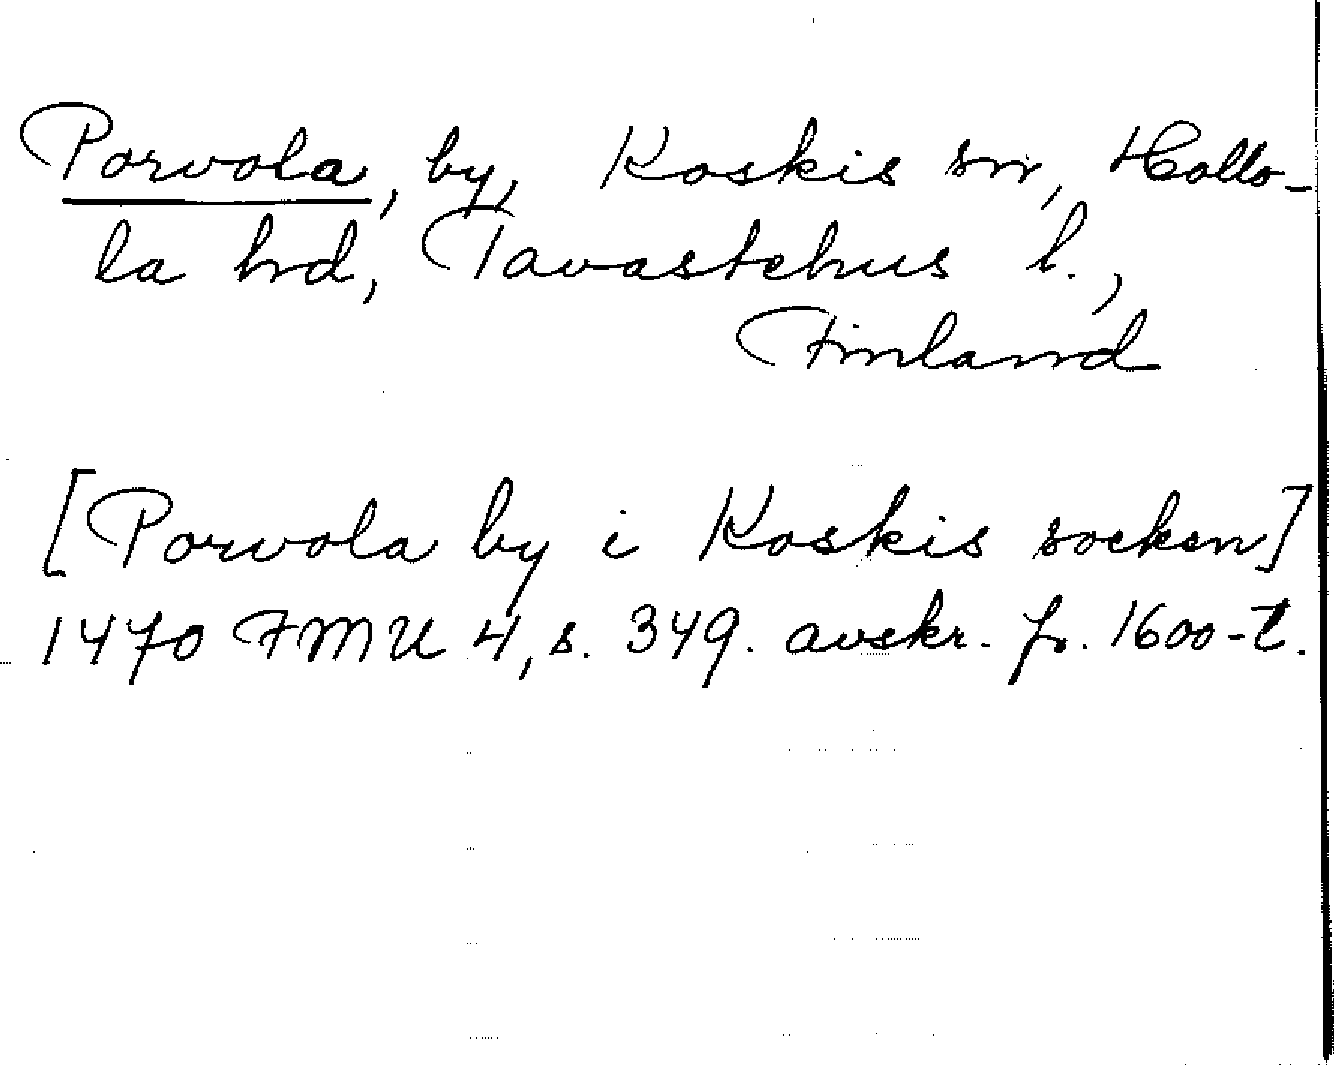 Porvola, by, Koskis sn, Hollo-
la hd, Tavastehus l.,
Finland
[Porvola by i Koskis socken]
1470 FMU 4, s. 349. avskr. fr. 1600-t.